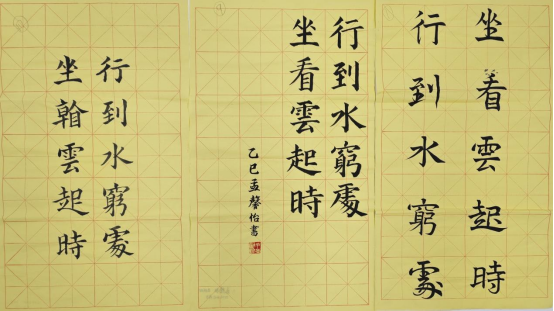 行到水窮處
坐雲起時
行到水窮處
坐看雲起時
乙巳孟馨怡書
坐看雲起時
行到水窮處